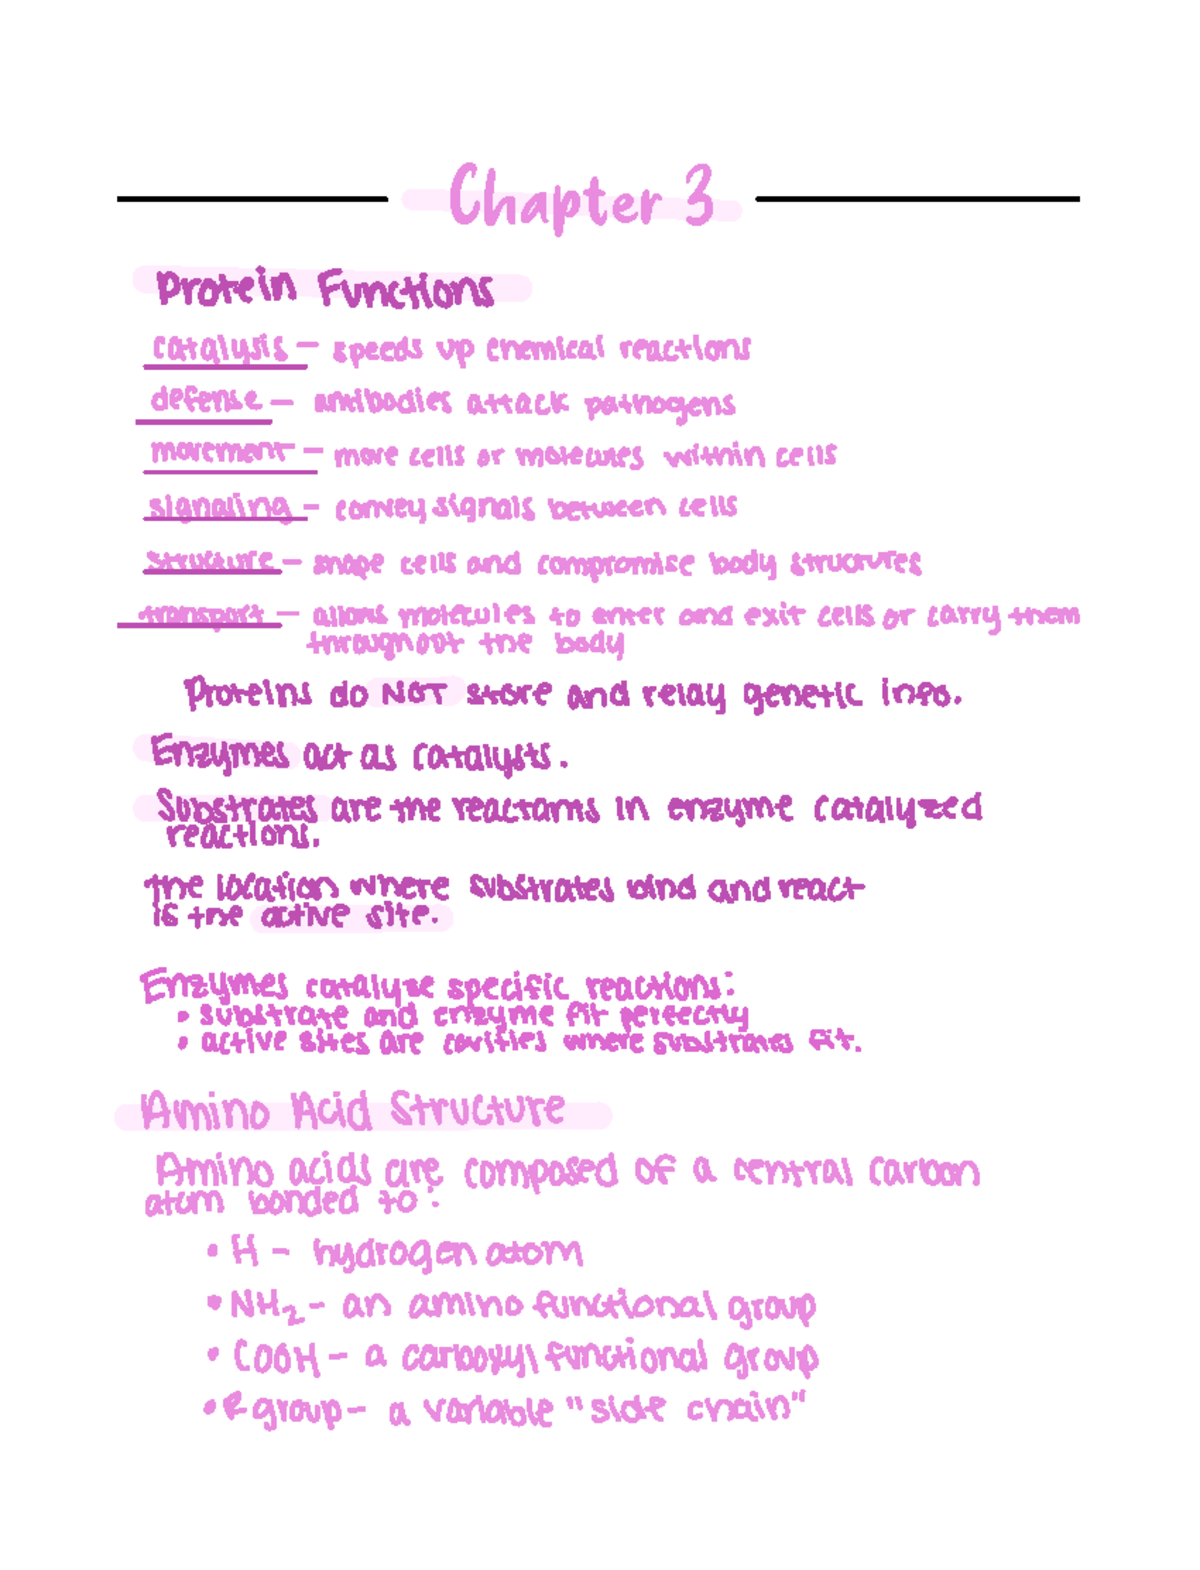 Chapter 3
Protein Functions
catalysis – speeds up chemical reactions
defense – antibodies attack pathogens
movement – move cells or molecules within cells
signaling – convey signals between cells
structure – shape cells and compromise body structures
transport – allows molecules to enter and exit cells or carry them
throughout the body
Proteins do NOT store and relay genetic info.
Enzymes act as catalysts.
Substrates are the reactants in enzyme catalyzed
reactions.
the location where substrates bind and react
is the active site.
Enzymes catalyze specific reactions:
• substrate and enzyme fit perfectly
• active sites are cavities where substrates fit.
Amino Acid Structure
Amino acids are composed of a central carbon
atom bonded to:
• H – hydrogen atom
• NH₂ – an amino functional group
• COOH – a carboxyl functional group
• R group – a variable "side chain"